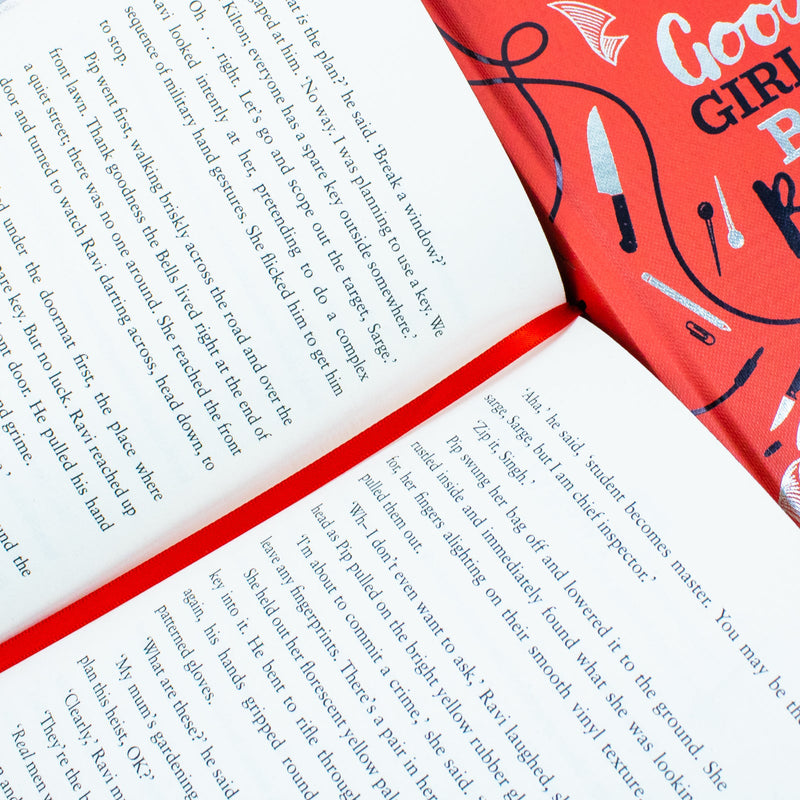 hat is the plan?' he said. 'Break a window?'
gaped at him. 'No way. I was planning to use a key. We
Kilton; everyone has a spare key outside somewhere.'
Oh . . . right. Let's go and scope out the target, Sarge.'
Ravi looked intently at her, pretending to do a complex
sequence of military hand gestures. She flicked him to get him
to stop.
Pip went first, walking briskly across the road and over the
front lawn. Thank goodness the Bells lived right at the end of
a quiet street; there was no one around. She reached the front
door and turned to watch Ravi darting across, head down, to
ed under the doormat first, the place where
are key. But no luck. Ravi reached up
ont door. He pulled his hand
d grime.
und the
'Aha,' he said, 'student becomes master. You may be th
sarge, Sarge, but I am chief inspector.'
'Zip it, Singh.'
Pip swung her bag off and lowered it to the ground. She
rustled inside and immediately found what she was lookin
for, her fingers alighting on their smooth vinyl texture.
pulled them out.
'Wh– I don't even want to ask,' Ravi laughed, sh
head as Pip pulled on the bright yellow rubber gl
'I'm about to commit a crime,' she said.
leave any fingerprints. There's a pair in her
She held out her florescent yellow pal
key into it. He bent to rifle through
again, his hands gripped round
patterned gloves.
'What are these?' he said
'My mum's gardening
plan this heist, OK?'
'Clearly,' Ravi m
'They're the b
'Real men
Good
GIRL